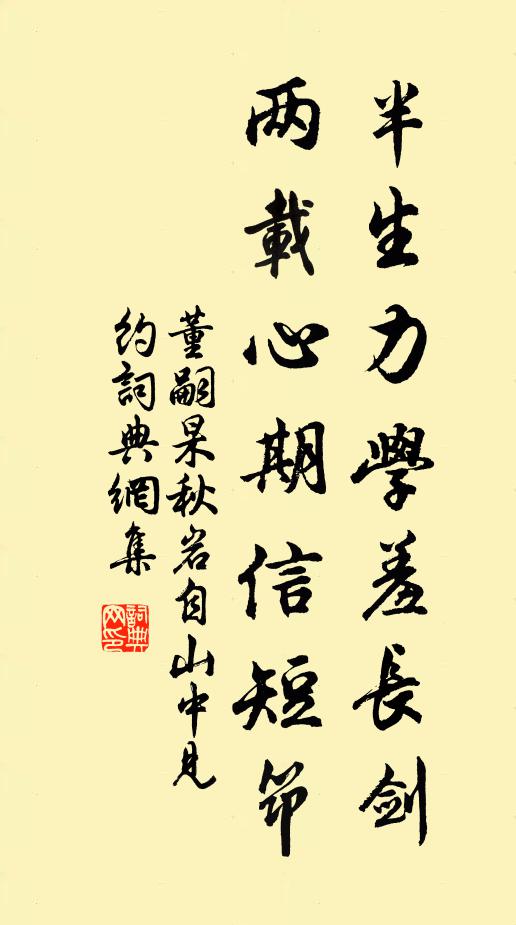 半生力學羞長剑
两載心期信短筇
董嗣杲秋岩自山中見
約詞典網集
詞典网印